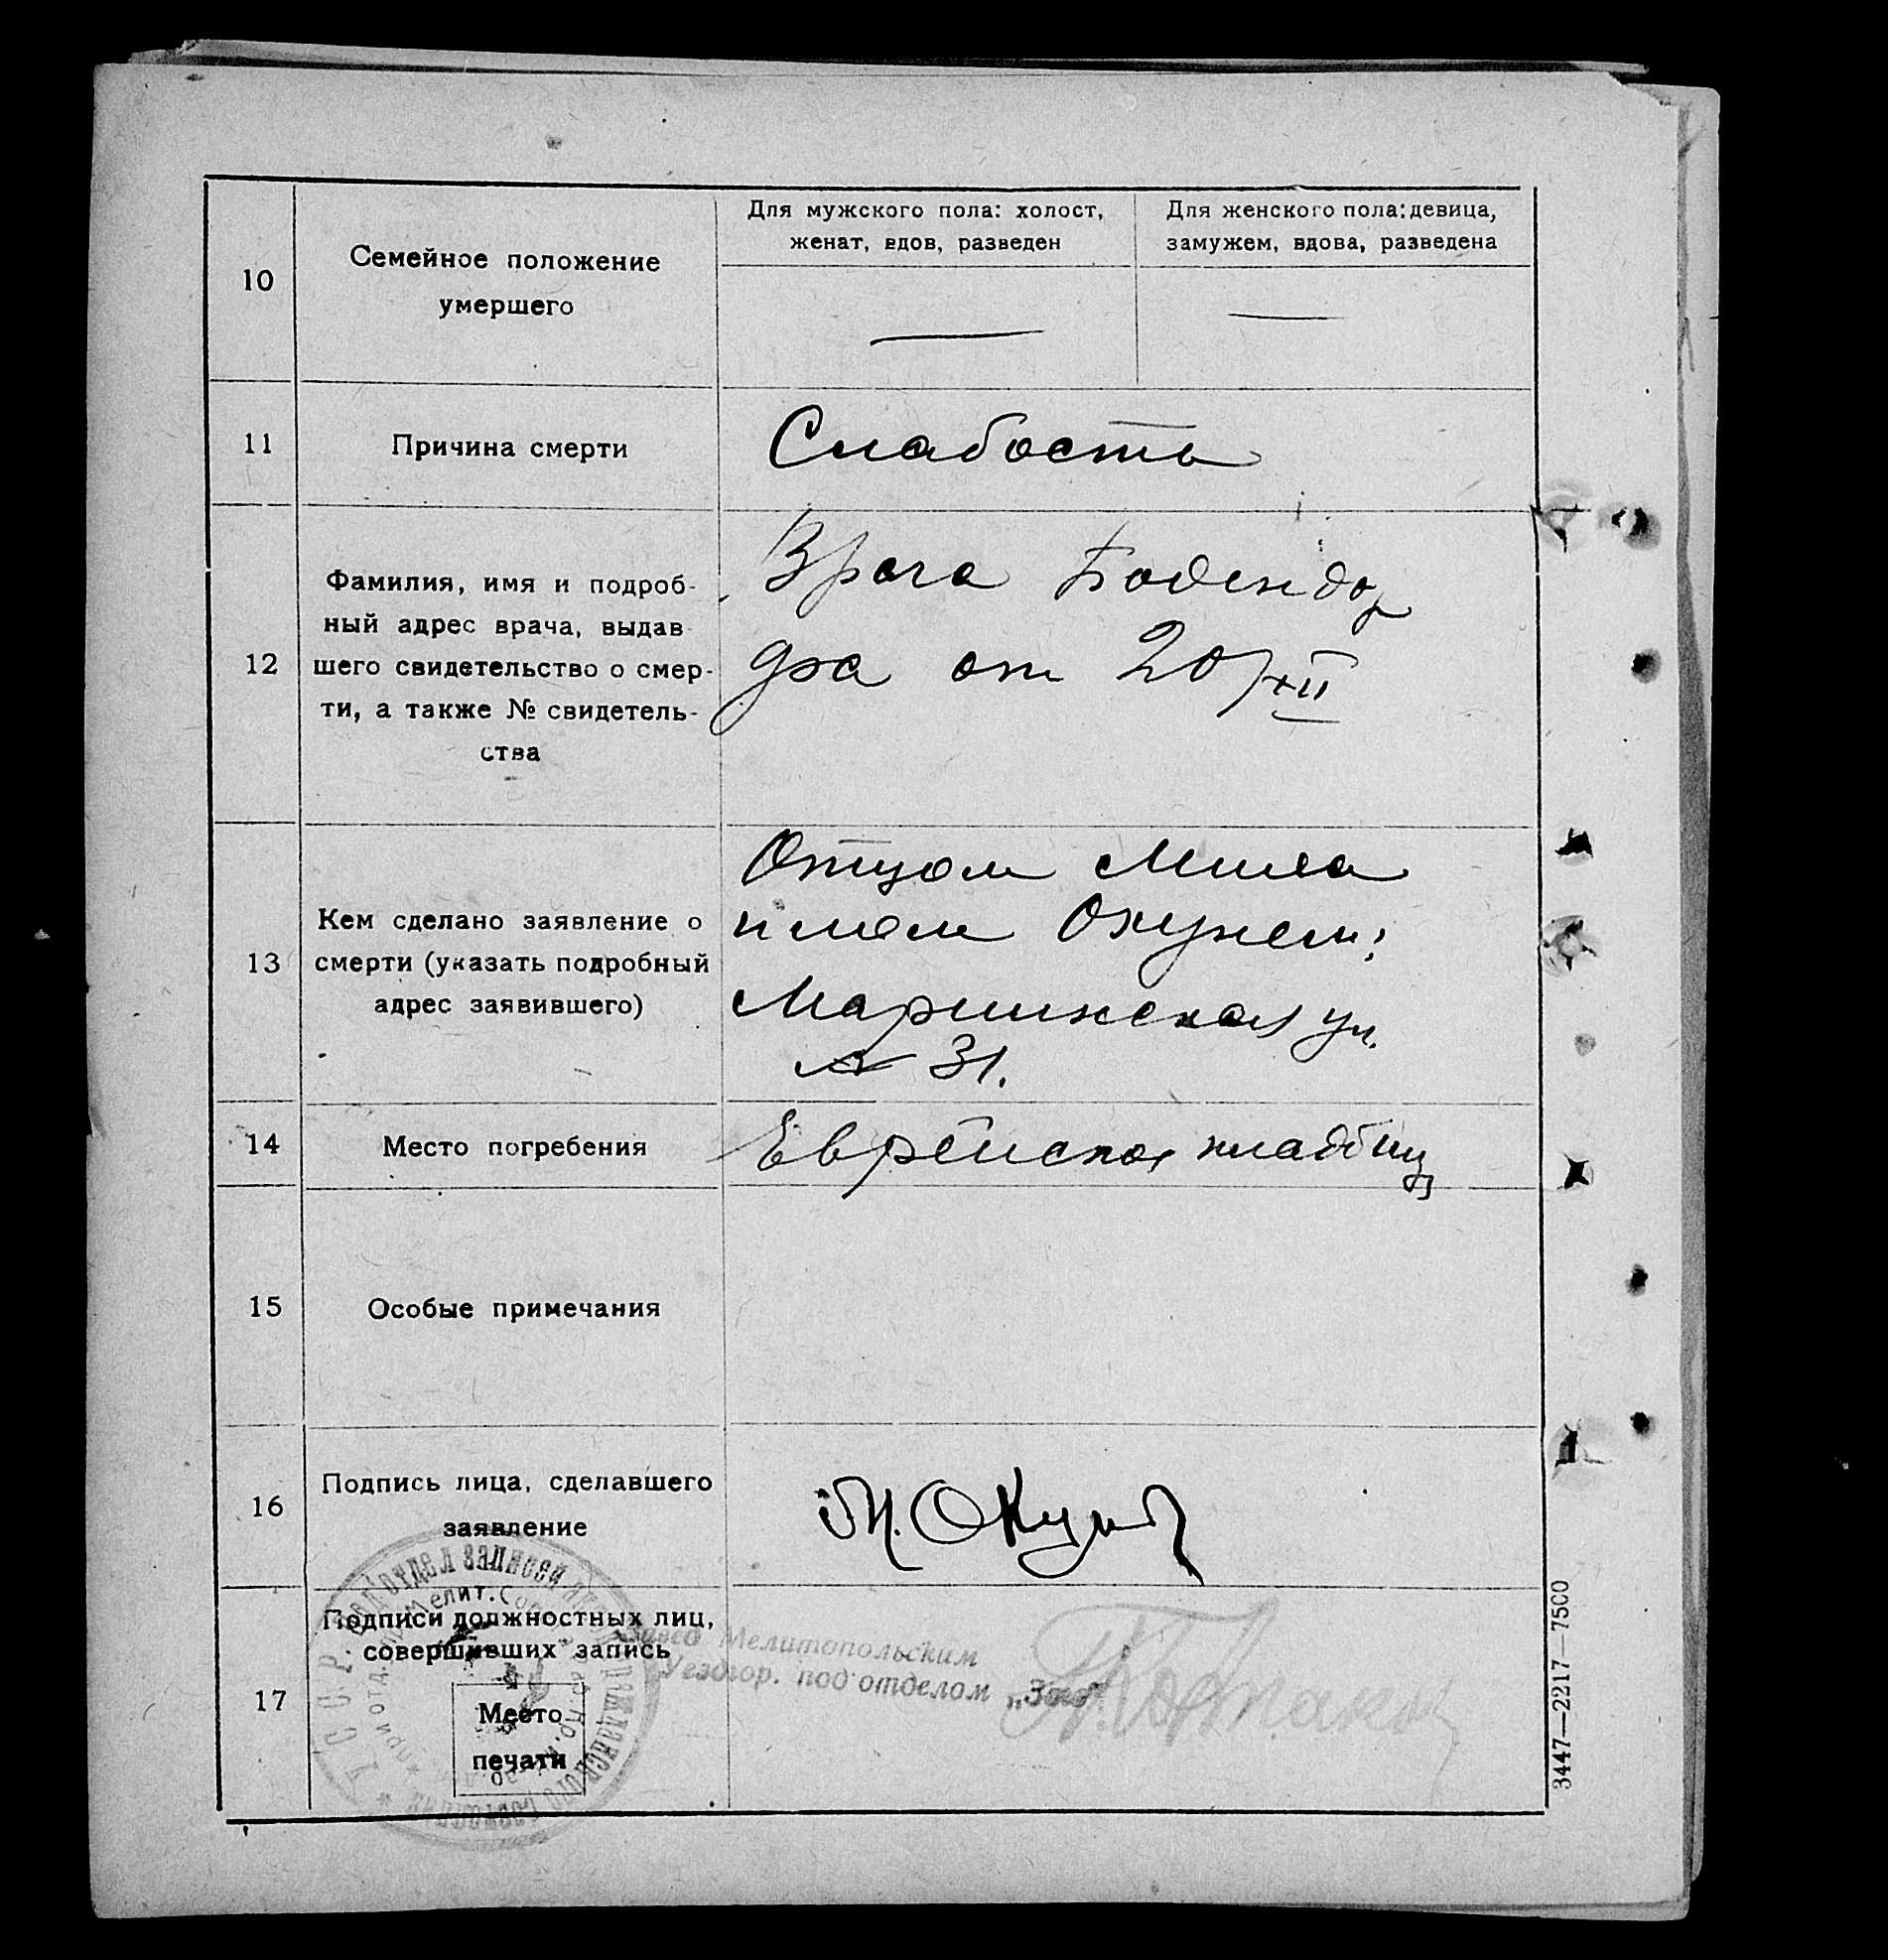 10
Семейное положение
умершего
Для мужского пола: холост,
женат, вдов, разведен
Для женского пола: девица,
замужем, вдова, разведена
11
Причина смерти
Слабость
12
Фамилия, имя и подроб-
ный адрес врача, выдав
шего свидетельство о смер-
ти, а также № свидетель-
ства
Врача
от 20/XII
13
Кем сделано заявление о
смерти (указать подробный
адрес заявившего)
Отцом Миха
илом Окунем;
Мариинская ул.
№ 31.
14
Место погребения
Еврейское кладбищ
15
Особые примечания
16
Подпись лица, сделавшего
заявление
М. Окунь
17
Подписи должностных лиц,
совершивших запись
Место
печати
Завед Мелитопольским
Уездгор. под'отделом „Загс"
3447—2217—7500